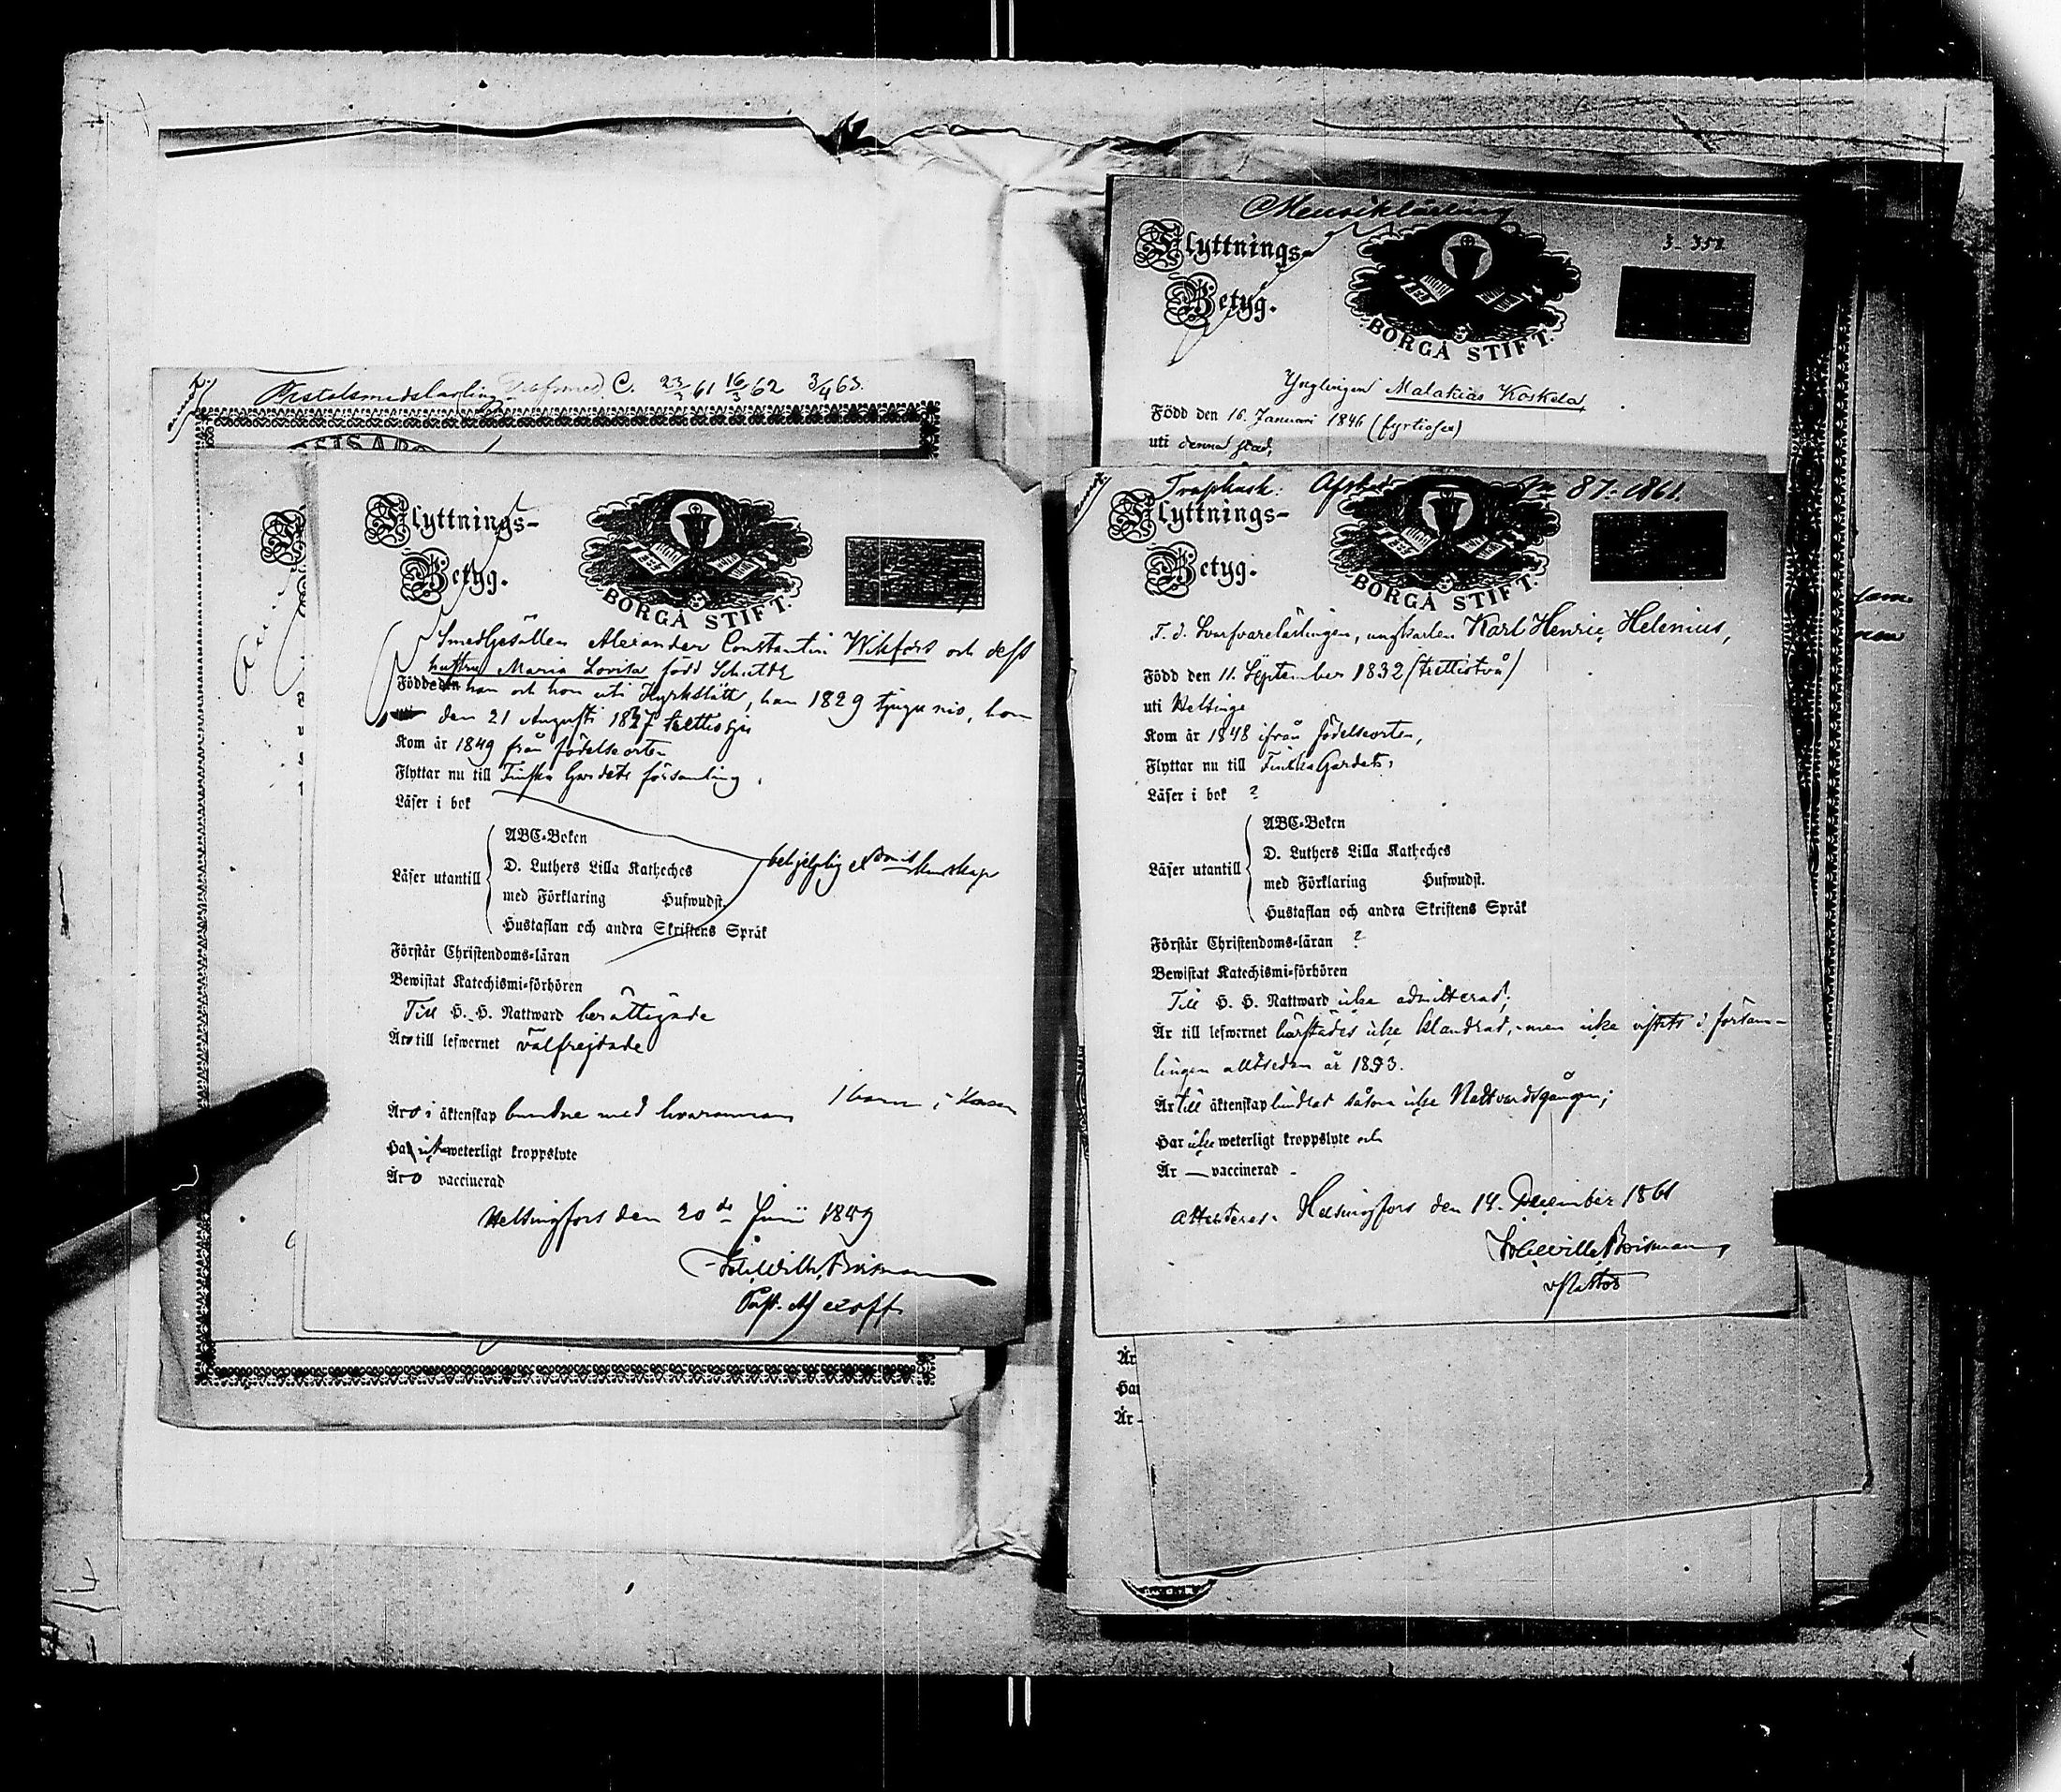 C. 23/2 61 16/3 62 3/4 63.
Flyttnings-
Betyg.
BORGÅ STIFT.
Smedgesällen Alexander Constantin Wikfors och dess
hustru Maria Lovisa född Schultz
Född den han och hon uti Kyrkslätt, han 1829 tjugu nio, hon
den 21 Augusti 1827
Kom år 1849 från födelseorten
Flyttar nu till Finska Gardets församling.
Läser i bok
Läser utantill
ABC-Boken
D. Luthers Lilla Katheches
med Förklaring Hufwudst.
Hustaflan och andra Skriftens Språk
behjelplig kunskap
Förstår Christendoms-läran
Bewistat Katechismi-förhören
Till H. H. Nattward berättigade
Äro till lefwernet välfrejdade
Äro i äktenskap bundne med hvarannan 1 barn i
Har weterligt kroppslyte
Äro vaccinerad
Helsingfors den 20de Junii 1849
Flyttnings-
Betyg.
BORGÅ STIFT.
3. 358
Ynglingen Malakias Koskela
Född den 16. Januari 1846 (fyrtiosex)
uti denna stad,
87. 1861.
Flyttnings-
Betyg.
BORGÅ STIFT.
F. d. Svarfvarelärlingen, ungkarlen Karl Henric Helenius,
Född den 11. September 1832 (trettiotvå)
uti Helsinge
Kom år 1848 ifrån födelseorten,
Flyttar nu till Finska Gardet.
Läser i bok ?
Läser utantill
ABC-Boken
D. Luthers Lilla Katheches
med Förklaring Hufwudst.
Hustaflan och andra Skriftens Språk
Förstår Christendoms-läran ?
Bewistat Katechismi-förhören
Till H. H. Nattward icke admitterad;
Är till lefwernet härstädes icke klandrad, men icke vistats i försam-
lingen alltsedan år 1853.
Är till äktenskap hindrad såsom icke Nattvardsgången;
Har icke weterligt kroppslyte och
Är — vaccinerad -
attesteras. Helsingfors den 14. December 1861
Är
Har
Är